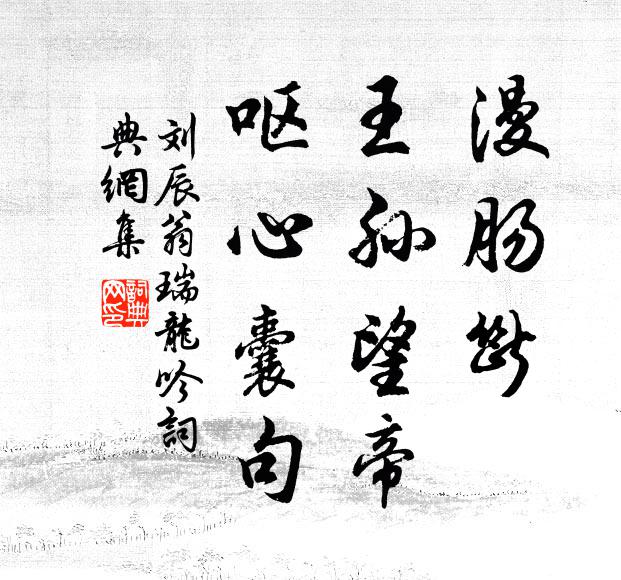 漫肠断
王孙望帝
呕心囊句
刘辰翁瑞龍吟詞
典網集
詞典
网印